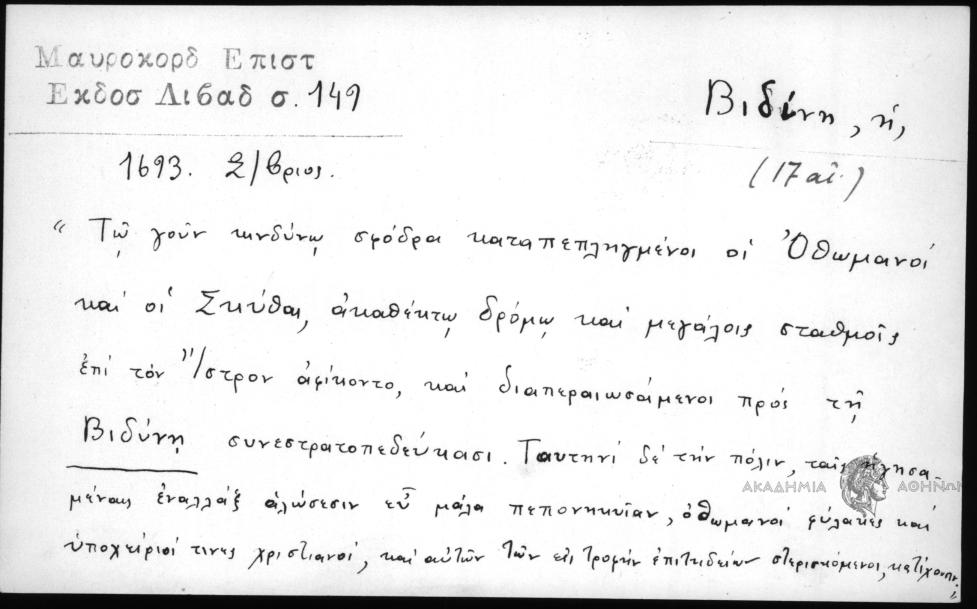 Μαυροκορδ Επιστ
Εκδοσ Λιβαδ σ. 149
Βιδύνη, ἡ,
(17 αἰ.)
1693. Σ/βριος.
“ Τῷ γοῦν κινδύνῳ σφόδρα καταπεπληγμένοι οἱ Ὀθωμανοί
καί οἱ Σκύθαι, ἀκαθέκτῳ δρόμῳ καί μεγάλοις σταθμοῖς
ἐπί τόν Ἴστρον ἀφίκοντο, καί διαπεραιωσάμενοι πρός τῇ
Βιδύνῃ συνεστρατοπεδεύκασι. Ταυτηνί δέ τήν πόλιν, ταῖς ἡγησα-
μέναις ἐναλλάξ ἁλώσεσιν εὖ μάλα πεπονηκυῖαν, ὀθωμανοί φύλακες καί
ὑποχείριοί τινες χριστιανοί, καί αὐτῶν τῶν εἰς τροφήν ἐπιτηδείων στερισκόμενοι,
ΑΚΑΔΗΜΙΑ ΑΘΗΝΩΝ